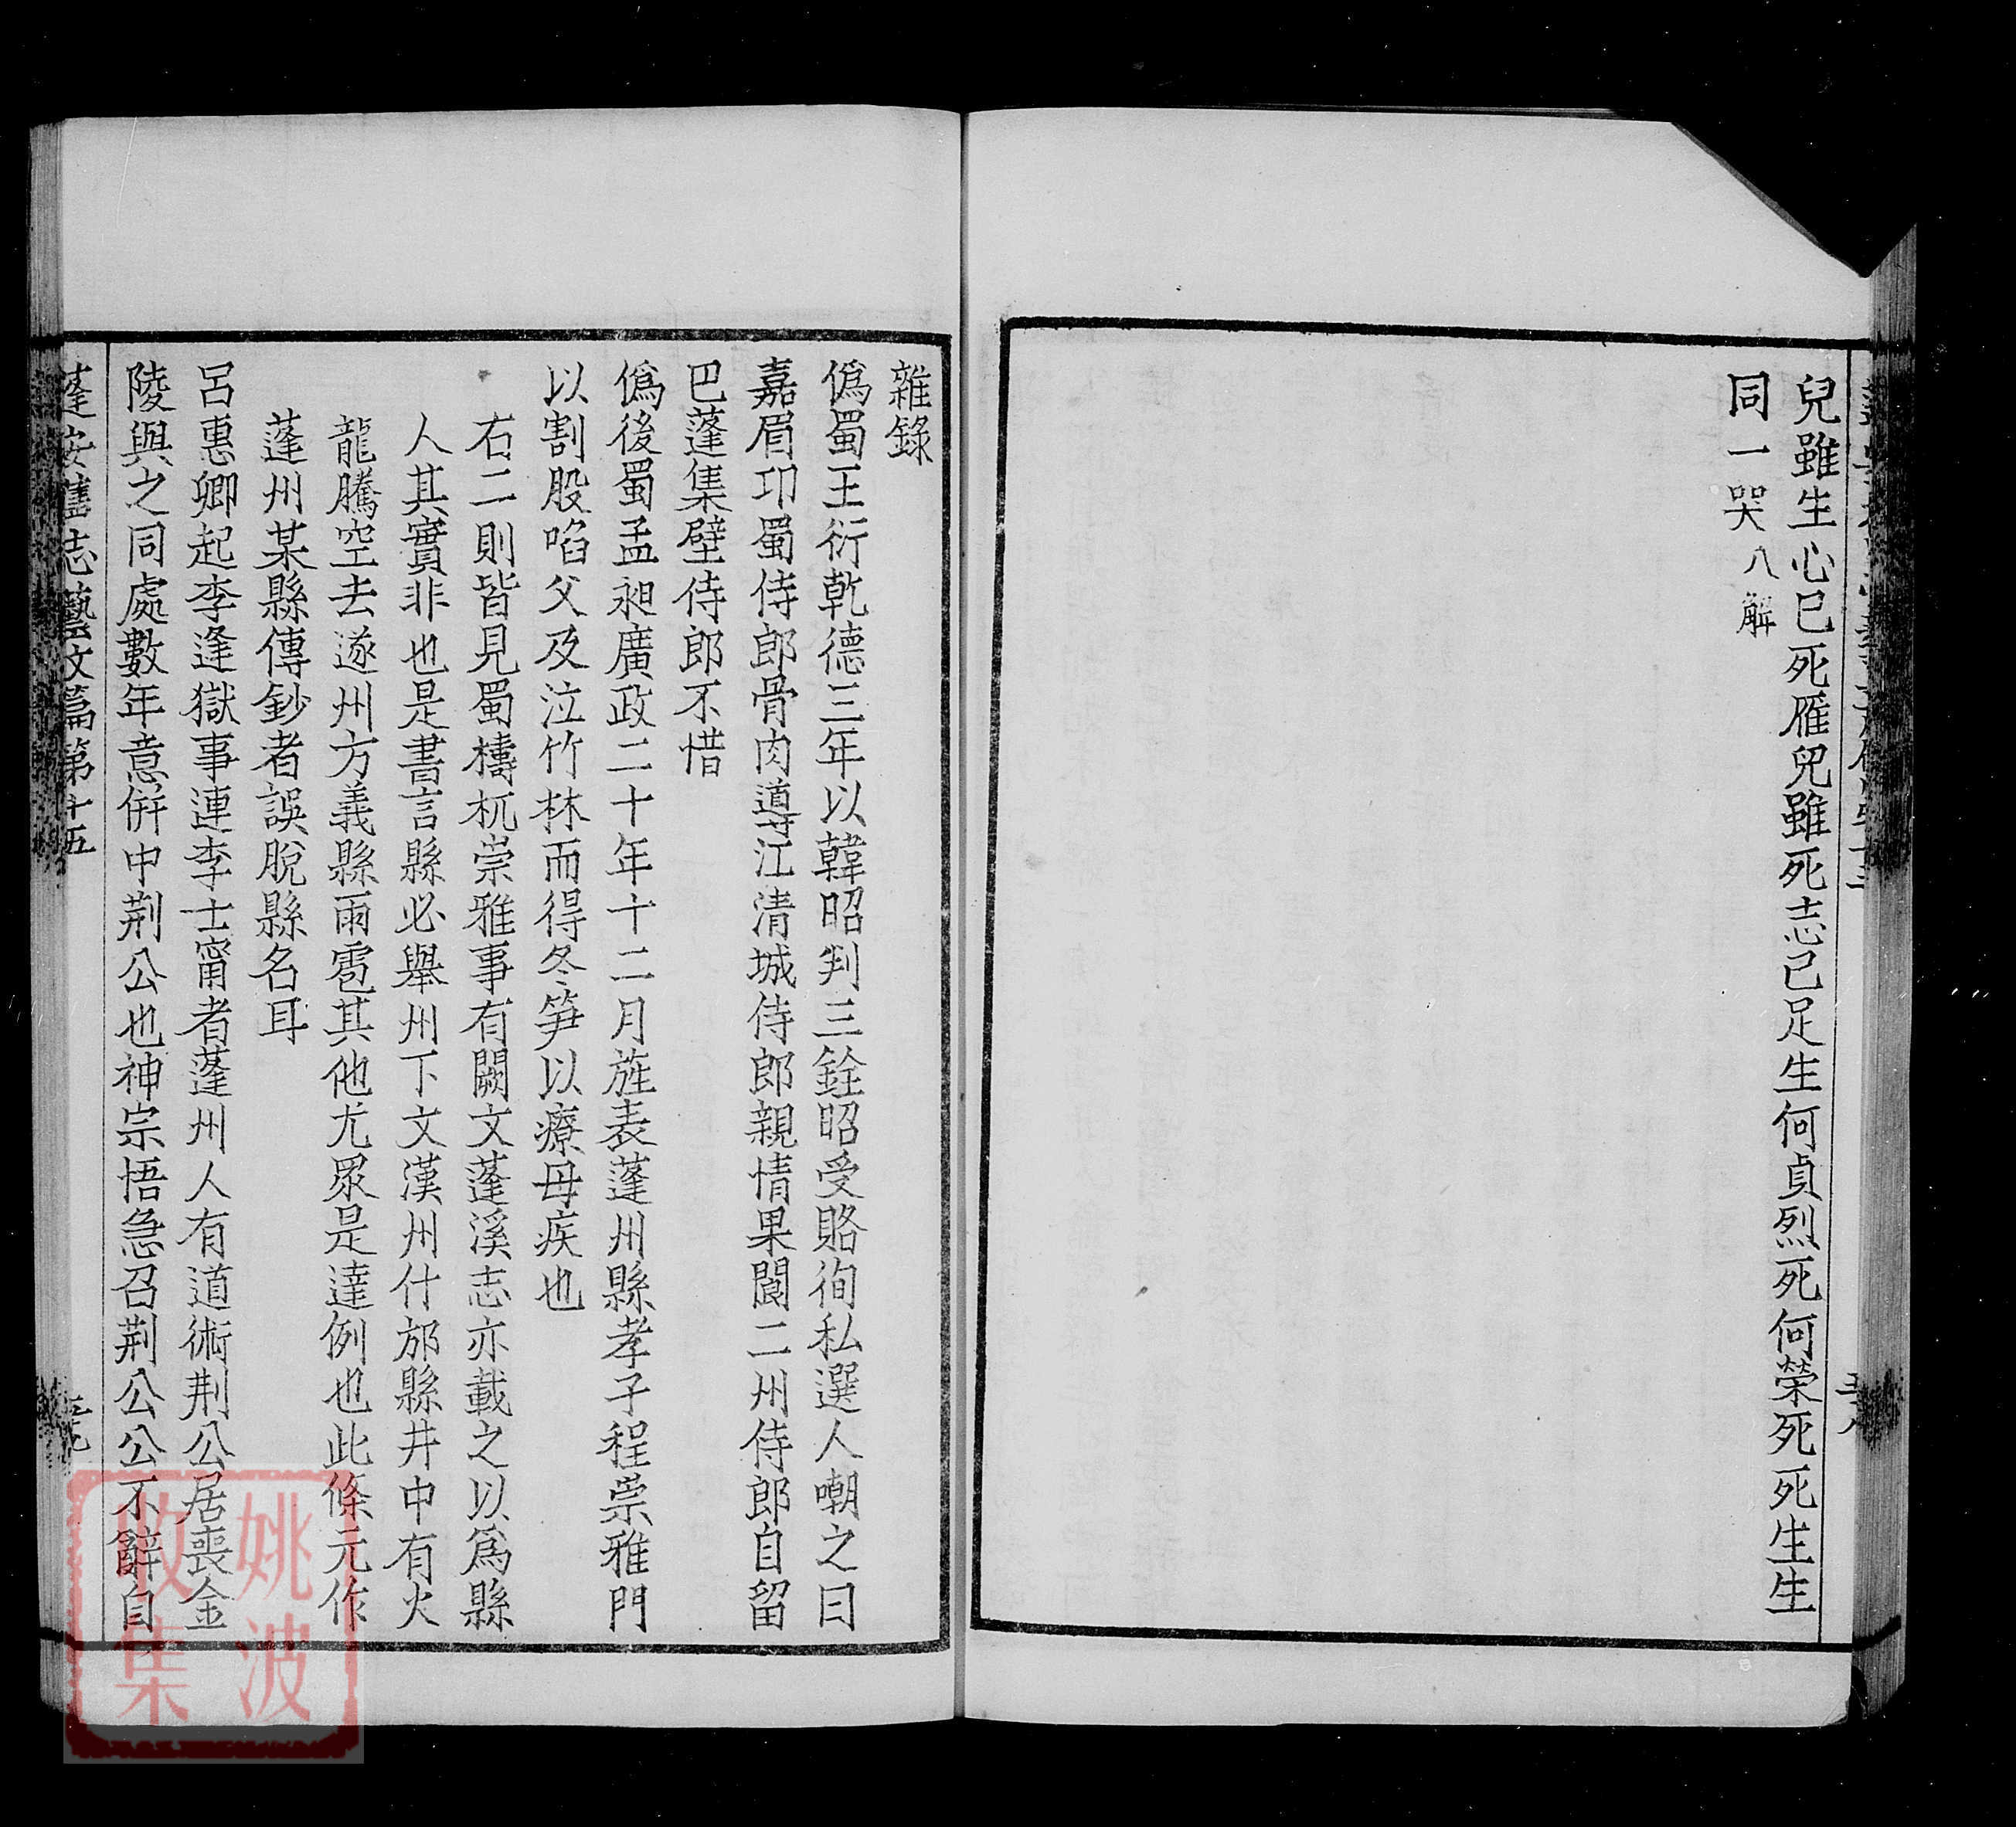 兒雖生心已死雁兒雖死志已足生何貞烈死何榮死死生生
同一哭八解
雜錄
僞蜀王衍乾德三年以韓昭判三銓昭受賂徇私選人嘲之曰
嘉眉邛蜀侍郎骨肉導江清城侍郎親情果閬二州侍郎自留
巴蓬集壁侍郎不惜
僞後蜀孟昶廣政二十年十二月旌表蓬州縣孝子程崇雅門
以割股啗父及泣竹林而得冬笋以療母疾也
右二則皆見蜀檮杌崇雅事有闕文蓬溪志亦載之以爲縣
人其實非也是書言縣必舉州下文漢州什邡縣井中有火
龍騰空去遂州方義縣雨雹其他尤眾是達例也此條元作
蓬州某縣傳鈔者誤脫縣名耳
呂惠卿起李逢獄事連李士甯者蓬州人有道術荆公居喪金
陵與之同處數年意併中荆公也神宗悟急召荆公公不辭自
蓬安舊志藝文篇第十五
姚波
收集